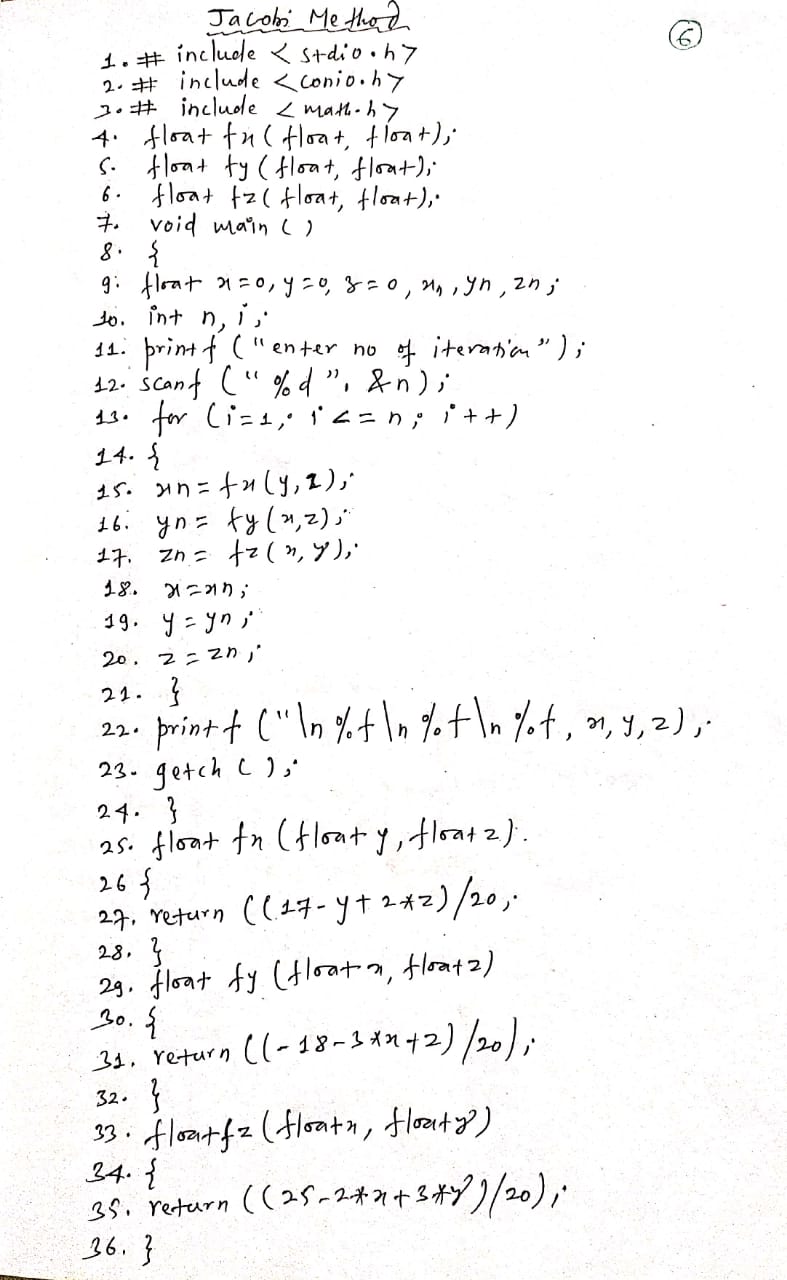 Jacobi Method
6
1. # include < stdio.h>
2. # include <conio.h>
3. # include < math.h>
4. float fx ( float, float);
5. float fy ( float, float);
6. float fz ( float, float);
7. void main ( )
8. {
9. float x=0, y=0, z=0, xn, yn, zn;
10. int n, i;
11. printf ("enter no of iteration");
12. scanf (" %d ", &n);
13. for (i=1; i<=n; i++)
14. {
15. xn = fx(y,z);
16. yn = fy(x,z);
17. zn = fz(x, y);
18. x=xn;
19. y=yn;
20. z=zn;
21. }
22. printf ("\n %f \n %f \n %f, x, y, z);
23. getch ( );
24. }
25. float fx (float y, float z).
26 {
27. return ((17-y+2*z)/20;
28. }
29. float fy (float x, float z)
30. {
31. return ((-18-3*x+z)/20);
32. }
33. float fz (float x, float y)
34. {
35. return ((25-2*x+3*y)/20);
36. }